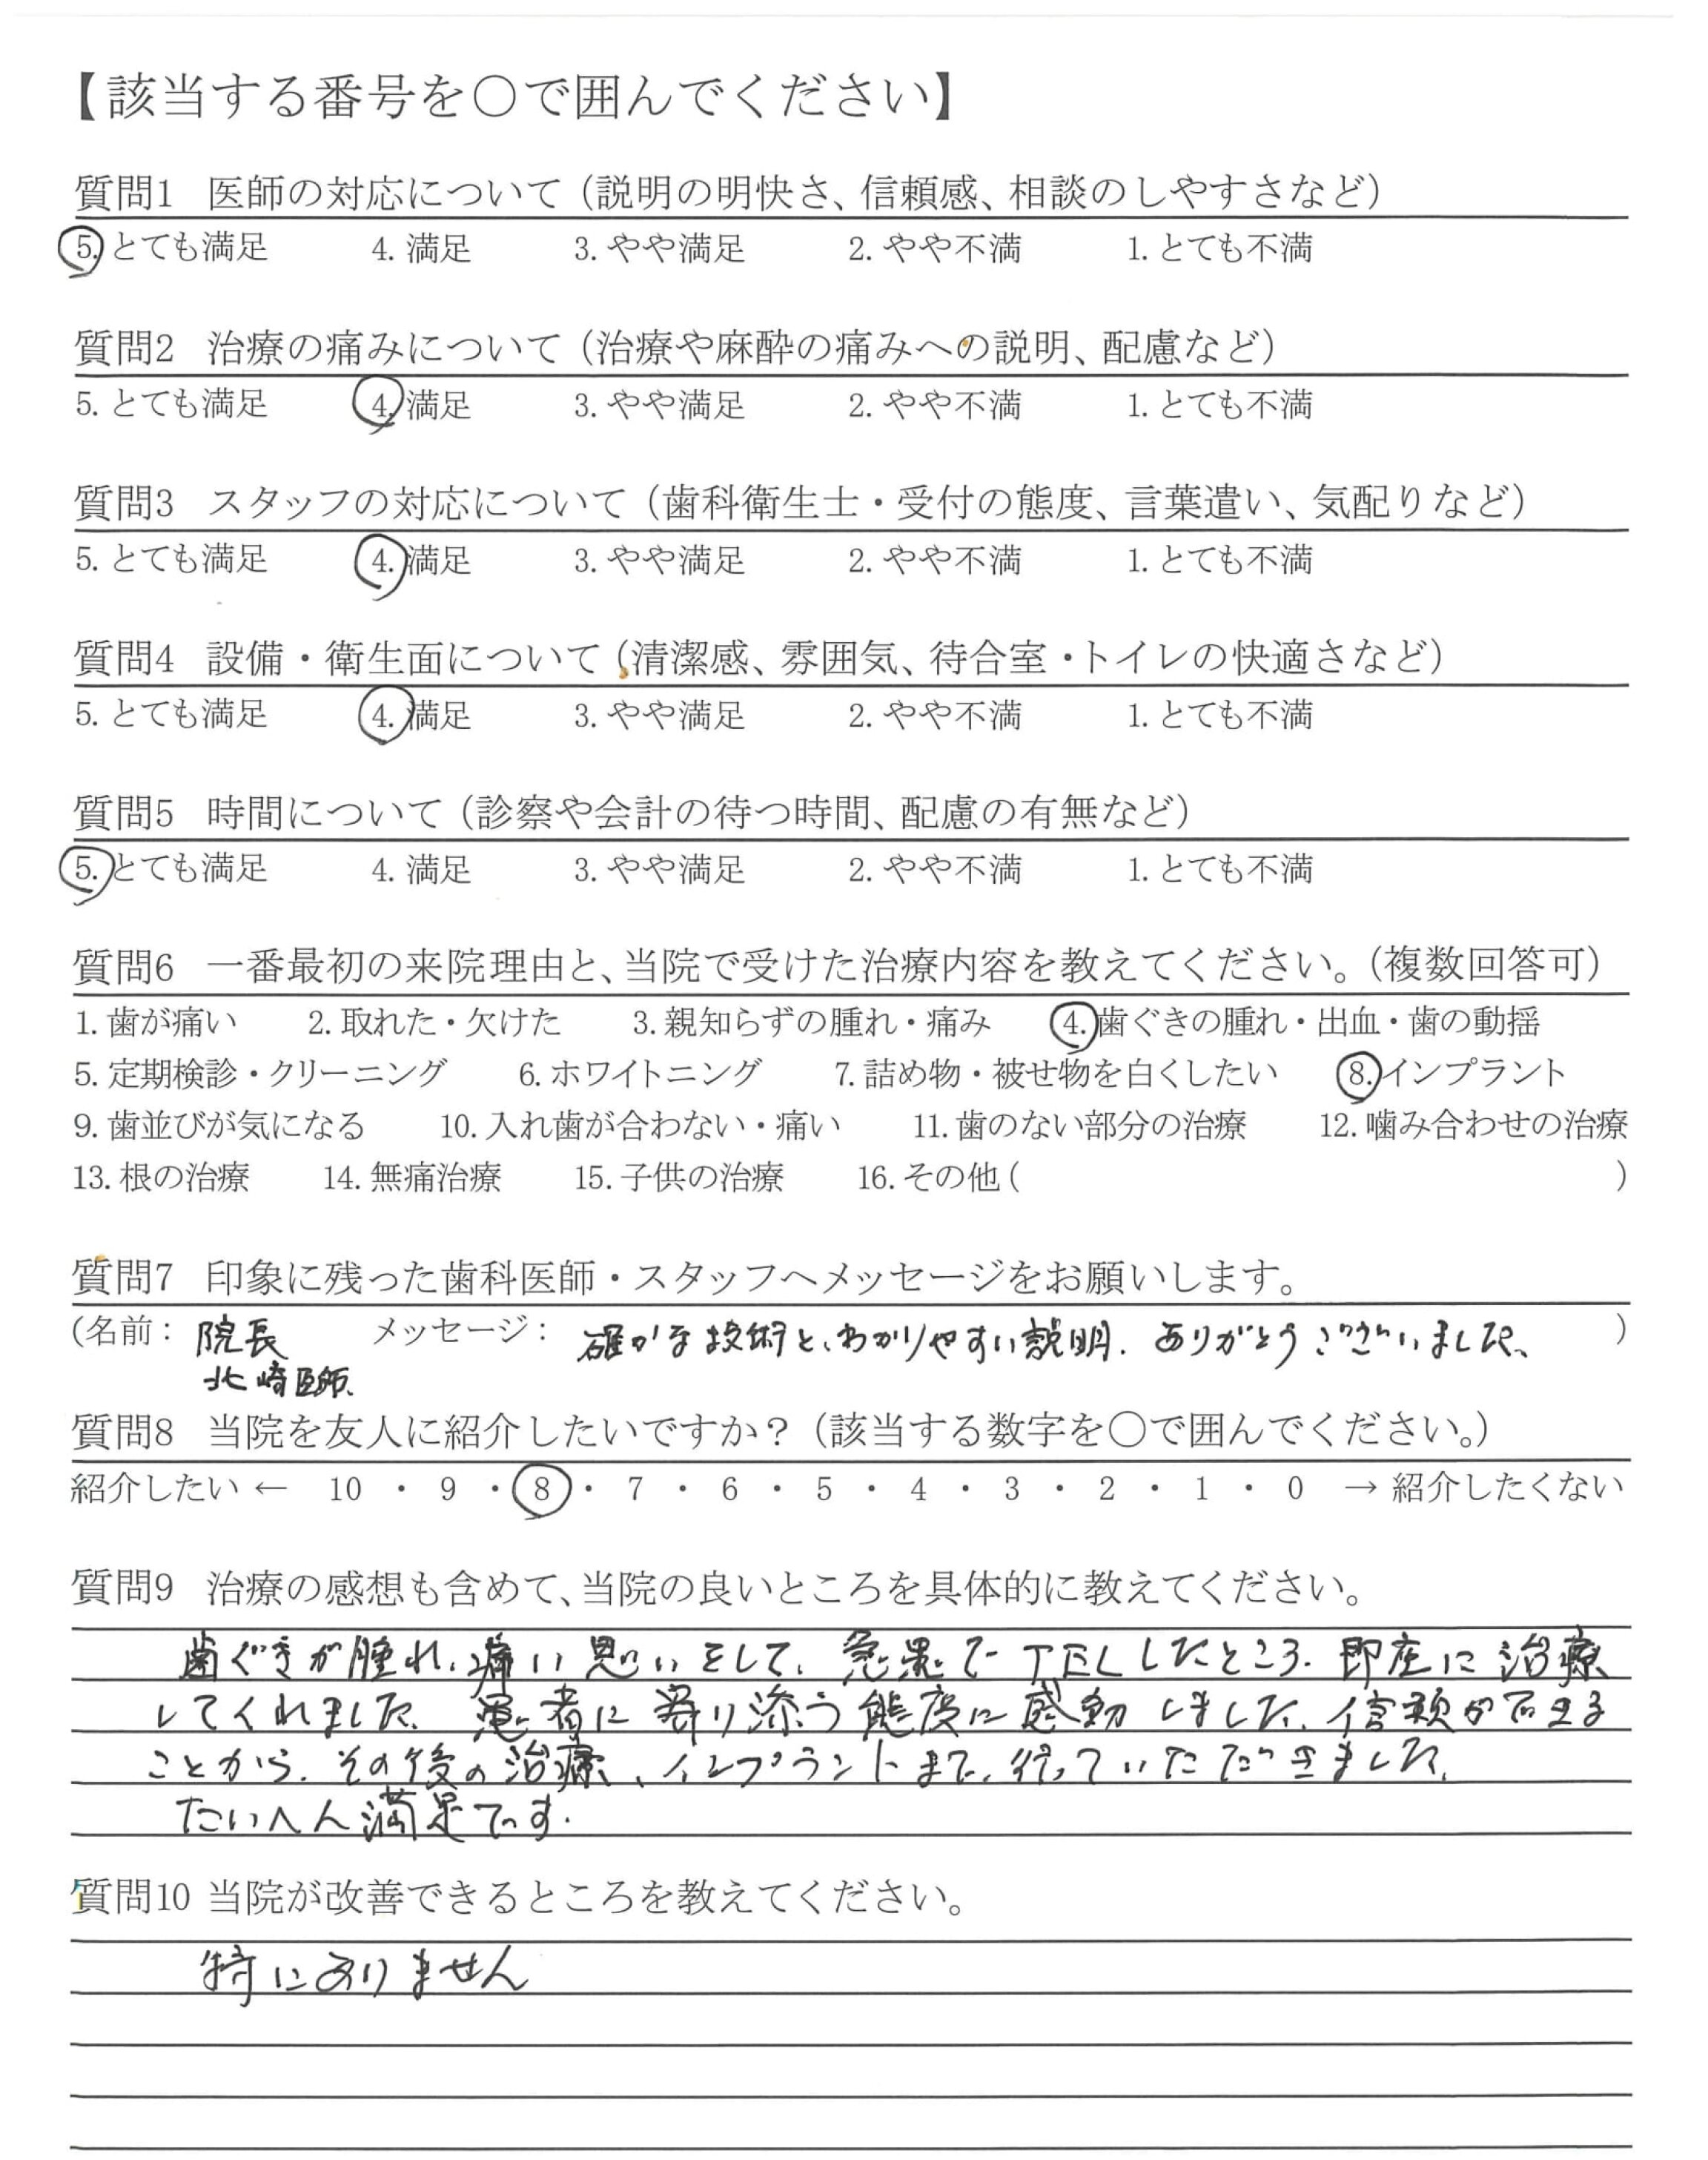 【該当する番号を〇で囲んでください】
質問1 医師の対応について（説明の明快さ、信頼感、相談のしやすさなど）
5. とても満足 4. 満足 3. やや満足 2. やや不満 1. とても不満
質問2 治療の痛みについて（治療や麻酔の痛みへの説明、配慮など）
5. とても満足 4. 満足 3. やや満足 2. やや不満 1. とても不満
質問3 スタッフの対応について（歯科衛生士・受付の態度、言葉遣い、気配りなど）
5. とても満足 4. 満足 3. やや満足 2. やや不満 1. とても不満
質問4 設備・衛生面について（清潔感、雰囲気、待合室・トイレの快適さなど）
5. とても満足 4. 満足 3. やや満足 2. やや不満 1. とても不満
質問5 時間について（診察や会計の待つ時間、配慮の有無など）
5. とても満足 4. 満足 3. やや満足 2. やや不満 1. とても不満
質問6 一番最初の来院理由と、当院で受けた治療内容を教えてください。（複数回答可）
1. 歯が痛い 2. 取れた・欠けた 3. 親知らずの腫れ・痛み 4. 歯ぐきの腫れ・出血・歯の動揺
5. 定期検診・クリーニング 6. ホワイトニング 7. 詰め物・被せ物を白くしたい 8. インプラント
9. 歯並びが気になる 10. 入れ歯が合わない・痛い 11. 歯のない部分の治療 12. 噛み合わせの治療
13. 根の治療 14. 無痛治療 15. 子供の治療 16. その他（ ）
質問7 印象に残った歯科医師・スタッフへメッセージをお願いします。
（名前： 院長 メッセージ： 確かな技術と、わかりやすい説明、ありがとうございました。 ）
北崎医師、
質問8 当院を友人に紹介したいですか？（該当する数字を〇で囲んでください。）
紹介したい ← 10 ・ 9 ・ 8 ・ 7 ・ 6 ・ 5 ・ 4 ・ 3 ・ 2 ・ 1 ・ 0 → 紹介したくない
質問9 治療の感想も含めて、当院の良いところを具体的に教えてください。
歯ぐきが腫れ、痛い思いをして、急患でTELしたところ、即座に治療
してくれました。患者に寄り添う態度に感動しました。信頼ができる
ことから、その後の治療、インプラントまで、行っていただきました。
たいへん満足です。
質問10 当院が改善できるところを教えてください。
特にありません